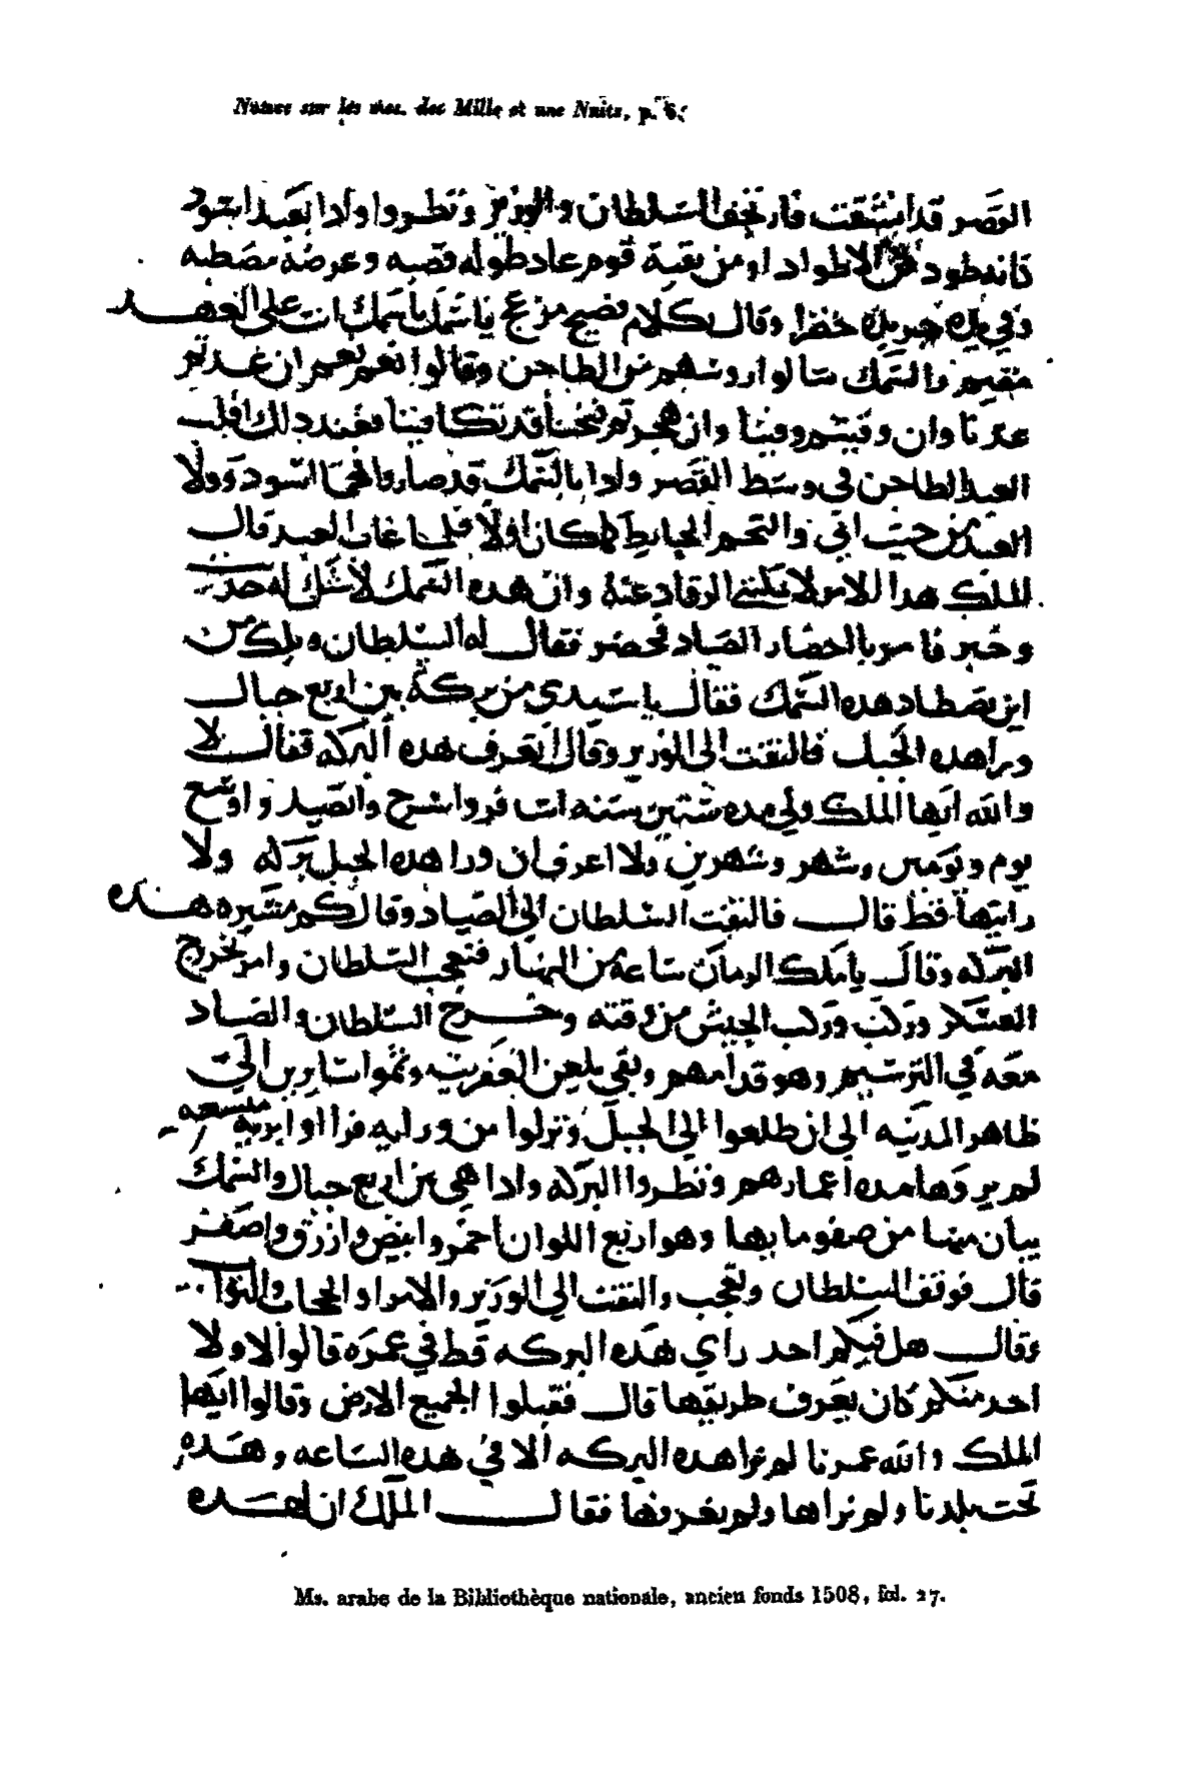 Notices sur les mss. des Mille et une Nuits, p. 6.
القصر قد انشقت فارتجف السلطان والوزير ونظروا وادا بعبد اسود
كانه طود من الاطواد او من بقية قوم عاد طوله قصبه وعرضه مصطبه
وفي يده جريده خضرا وقال بكلام فصيح مزعج يا سمك يا سمك انت على العهد
مقيم والسمك شالوا روسهم من الطاجن وقالوا نعم نعم ان عدتم
عدنا وان وفيتم وفينا وان هجرتم نحنا قد تكافينا فعند دالك اقلب
العبد الطاجن في وسط القصر وادا بالسمك قد صاروا فحما اسود وولا
العبد من حيت اتي والتحم الحايط كما كان اولا فلما غاب العبد قال
الملك هدا الامر لا يمكنني الرقاد عنه وان هده السمك لا شك له حديت
وخبر فامر باحضار الصياد فحضر فقال له السلطان ويلك من
اين بصطاد هده السمك فقال يا سيدي من بركة بين اربع جبال
ورا هده الجبل فالتفت الى الوزير وقال اتعرف هده البركه فقال لا
والله ايها الملك ولي مده ستين سنه انا ... واسرح واتصيد واوسع
يوم ويومين وشهر وشهرين ولا اعرف ان ورا هده الجبل بركه ولا
رايتها قط قال فالتفت السلطان الي الصياد وقال كم مسيره هده
البركه وقال يا ملك الزمان ساعة من النهار فتعجب السلطان وامر بخروج
العسكر وركب وركب الجيش من وقته وخرج السلطان والصياد
معه في الترسيم وهو قدامهم وبقي يلعن العفريت وتموا سايرين الي
ظاهر المدينه الي ان طلعوا الي الجبل ونزلوا من ورايه فراوا بريه متسعه
لم يروها مده اعمارهم ونظروا البركه وادا هي بين اربع جبال والسمك
يبان منها من صفو مايها وهو اربع اللوان احمر وابيض وازرق واصفر
قال فوقف السلطان وتعجب والتفت الي الوزير والامرا والحجاب والنواب
وقال هل فيكم احد راي هده البركه قط في عمره قالوا لا ولا
احد منكم كان يعرف طريقها قال فقبلوا الجميع الارض وقالوا ايها
الملك والله عمرنا لم نرا هده البركه الا في هده الساعه وهده
تحت بلدنا ولم نراها ولم نعرفها فقال الملك ان لهده
Ms. arabe de la Bibliothèque nationale, ancien fonds 1508, fol. 27.